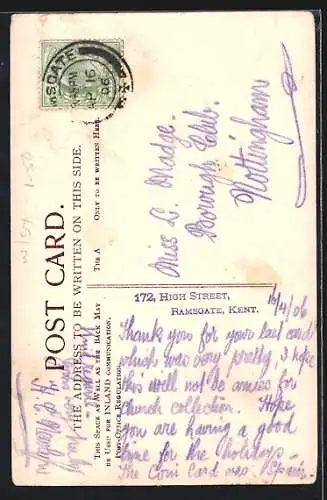 POST CARD.
THE ADDRESS TO BE WRITTEN ON THIS SIDE.
THIS SPACE AS WELL AS THE BACK MAY
BE USED FOR INLAND COMMUNICATION.
POST-OFFICE REGULATION.
THE A ONLY TO BE WRITTEN HERE.
SGATE
AP 16
06
W/Sx 1-50
Miss L. Madge.
Borough Club.
Nottingham
172, HIGH STREET,
RAMSGATE, KENT.
16/4/06
Thank you for your last card
which was very pretty I hope
this will not be amiss for
church collection. Hope
you are having a good
time for the holidays.
The Coin Card was